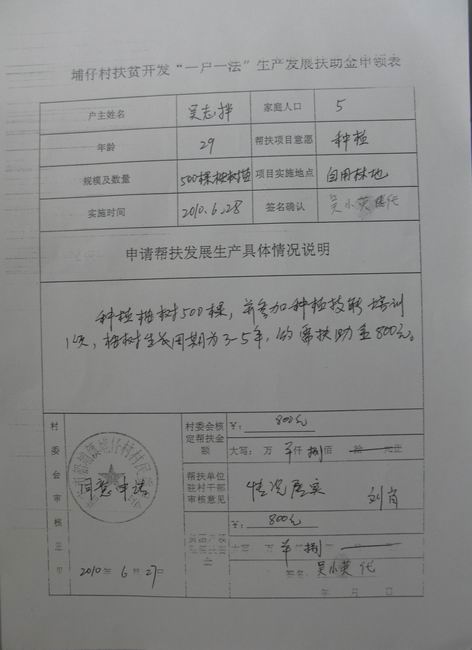 埔仔村扶贫开发“一户一法”生产发展扶助金申领表
户主姓名 吴志 家庭人口 5
年龄 29 帮扶项目意愿 种植
规模及数量 500棵柚树植 项目实施地点 自用林地
实施时间 2010.6.28 签名确认 吴小英 代
申请帮扶发展生产具体情况说明
种植柚树500棵，并参加种植技能培训
1次，柚树生长周期为3-5年，约需扶助金800元。
村委会审核
同意申请
2010年6月27
村委会核定帮扶金额
￥： 800元
大写： 万 仟 捌佰 拾 元正
帮扶单位驻村干部审核意见
情况属实 刘肖
￥： 800元
大写 万 捌
签名： 吴小英 代
年 月 日